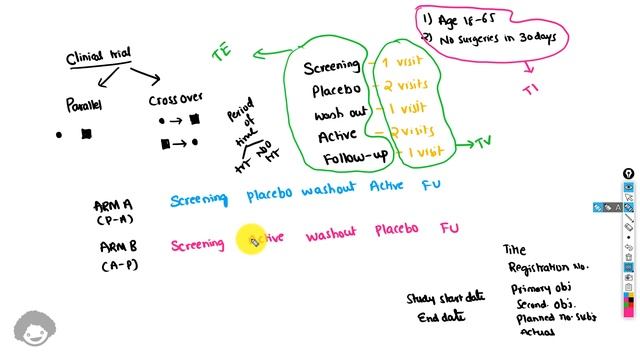 Clinical trial
Parallel
Cross over
Period of time
TRT
NO TRT
TE
Screening - 1 visit
Placebo - 2 visits
wash out - 1 visit
Active - 2 visits
Follow-up - 1 visit
TV
1) Age 18-65
2) No surgeries in 30 days
TI
ARM A
(P-A)
Screening placebo washout Active FU
ARM B
(A-P)
Screening Active washout Placebo FU
Title
Registration No.
Primary obj
Second. obj.
Planned no. subj
Actual
Study start date
End date